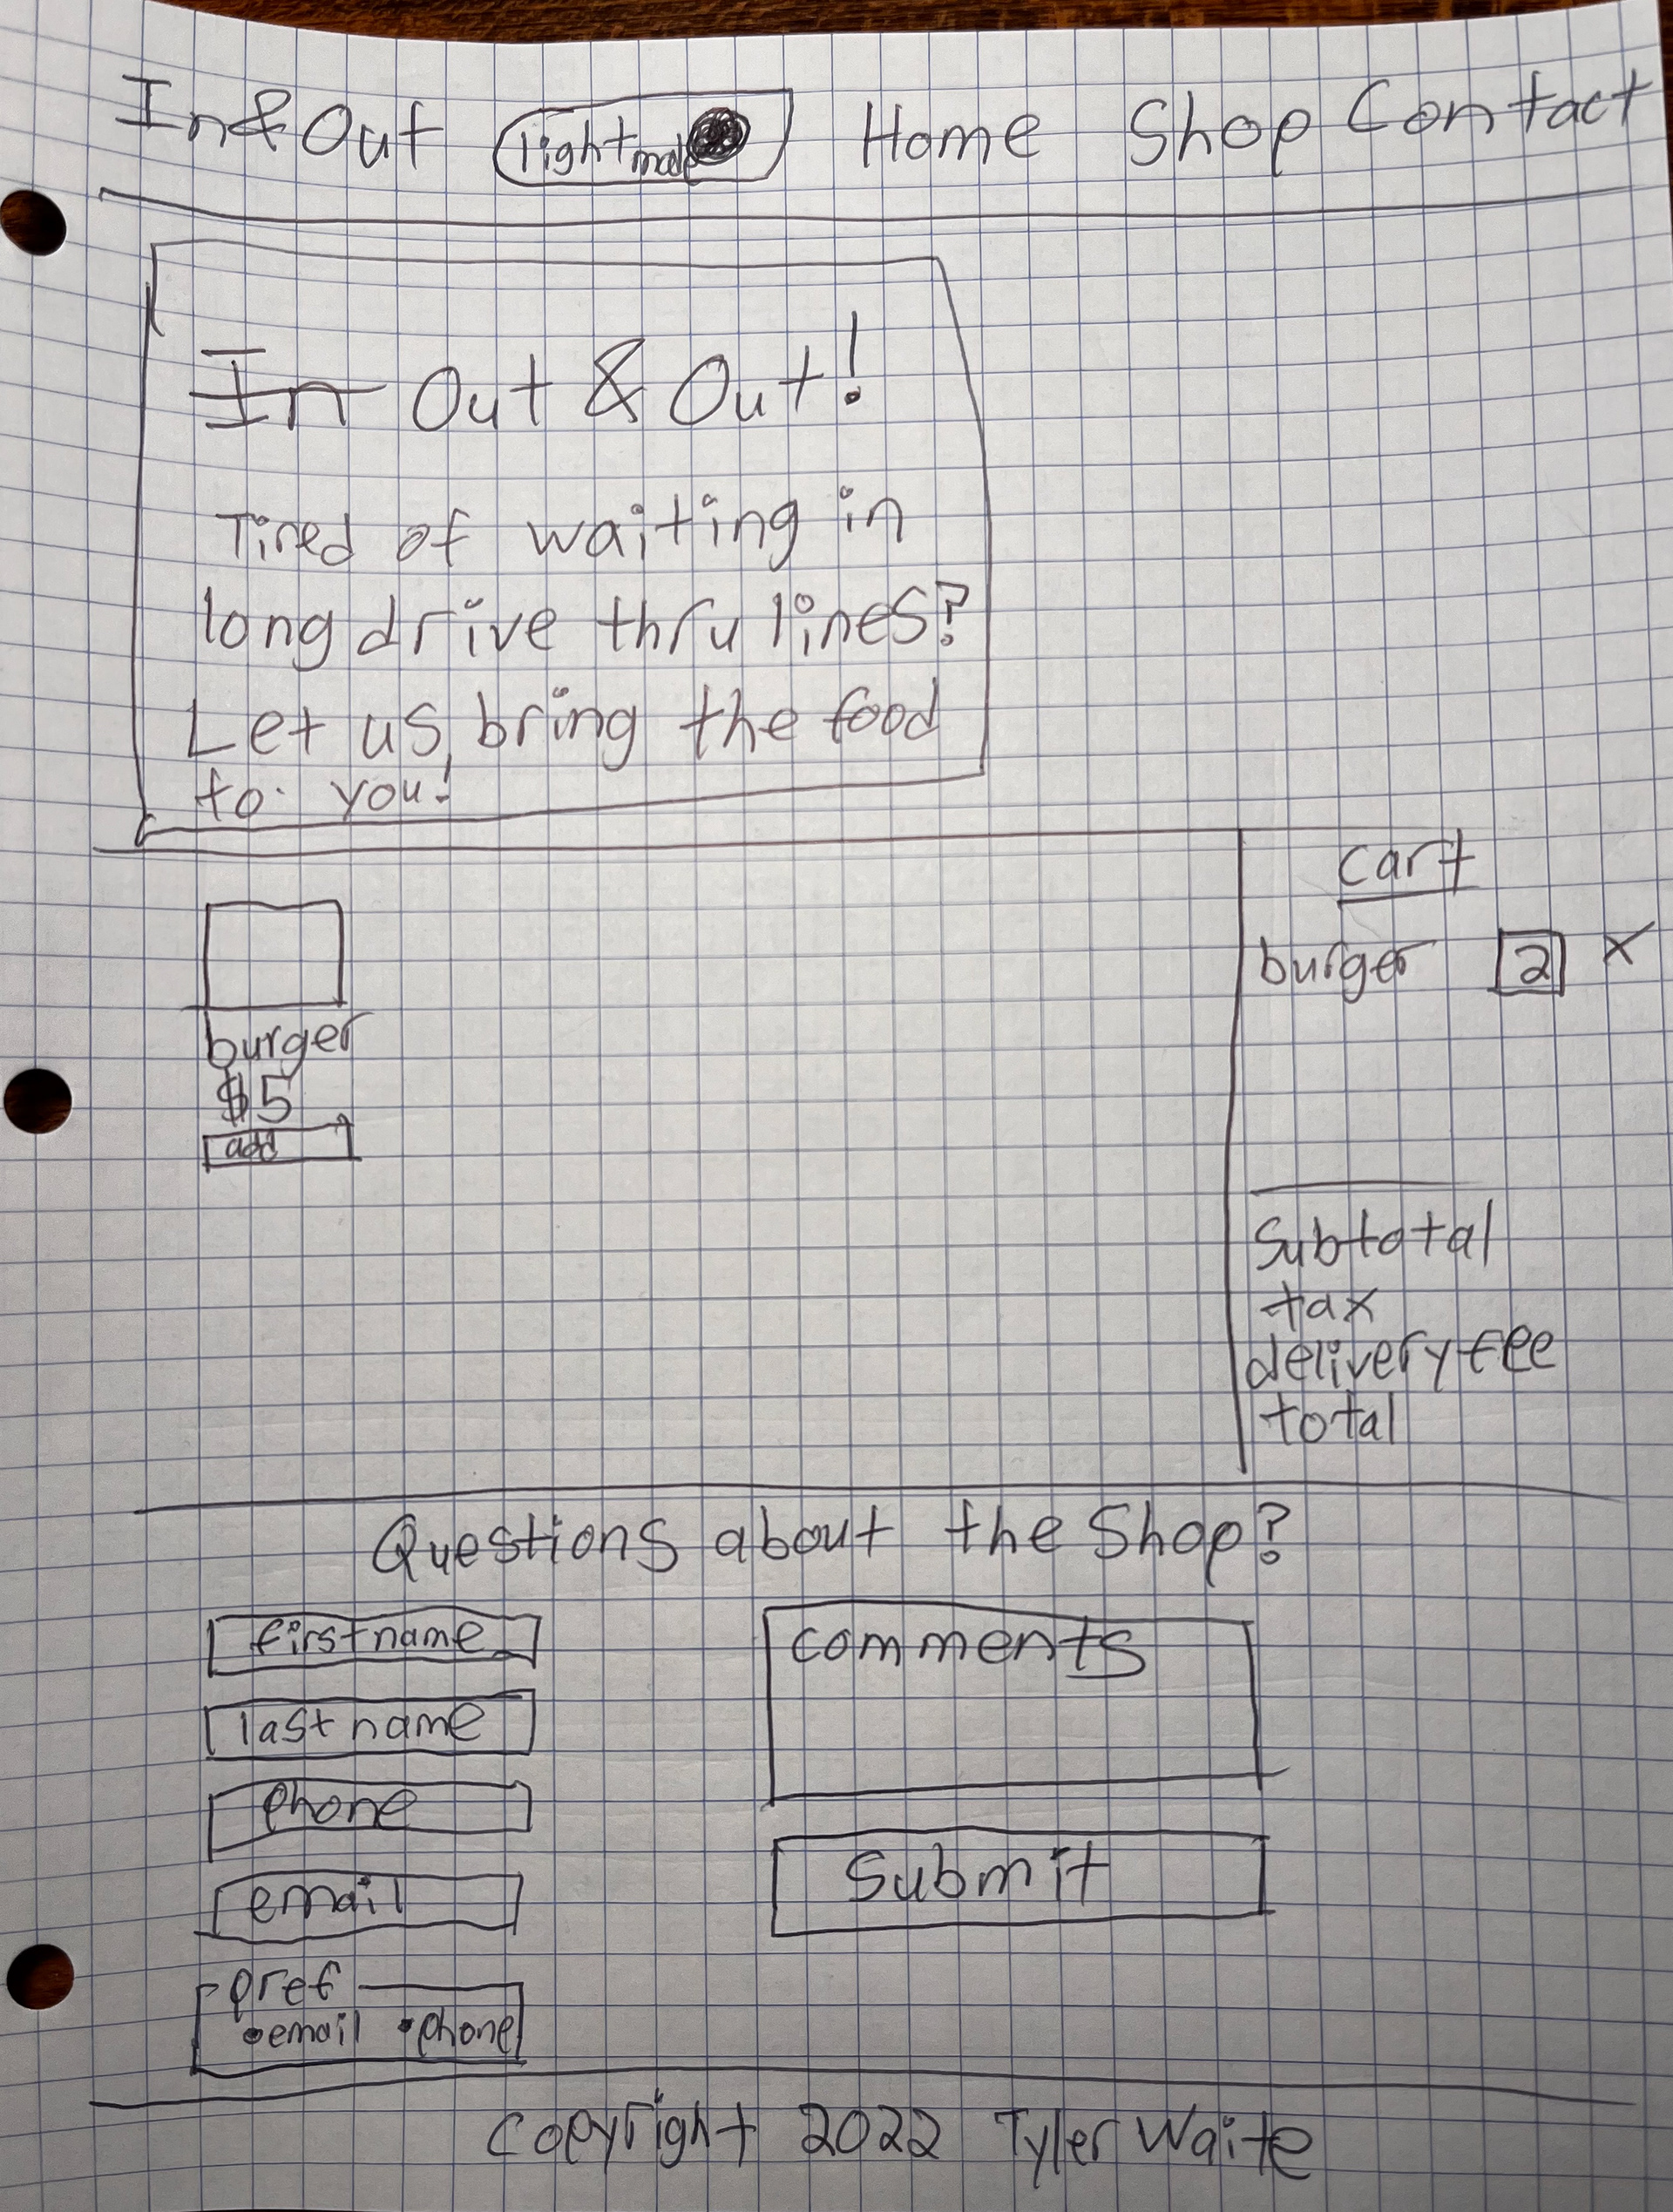 In&Out light mode Home Shop Contact
In Out & Out!
Tired of waiting in
long drive thru lines?
Let us bring the food
to you!
cart
burger 2 X
burger
$5
add
Subtotal
tax
delivery fee
total
Questions about the Shop?
first name
last name
phone
email
pref
•email •phone
comments
Submit
Copyright 2022 Tyler Waite